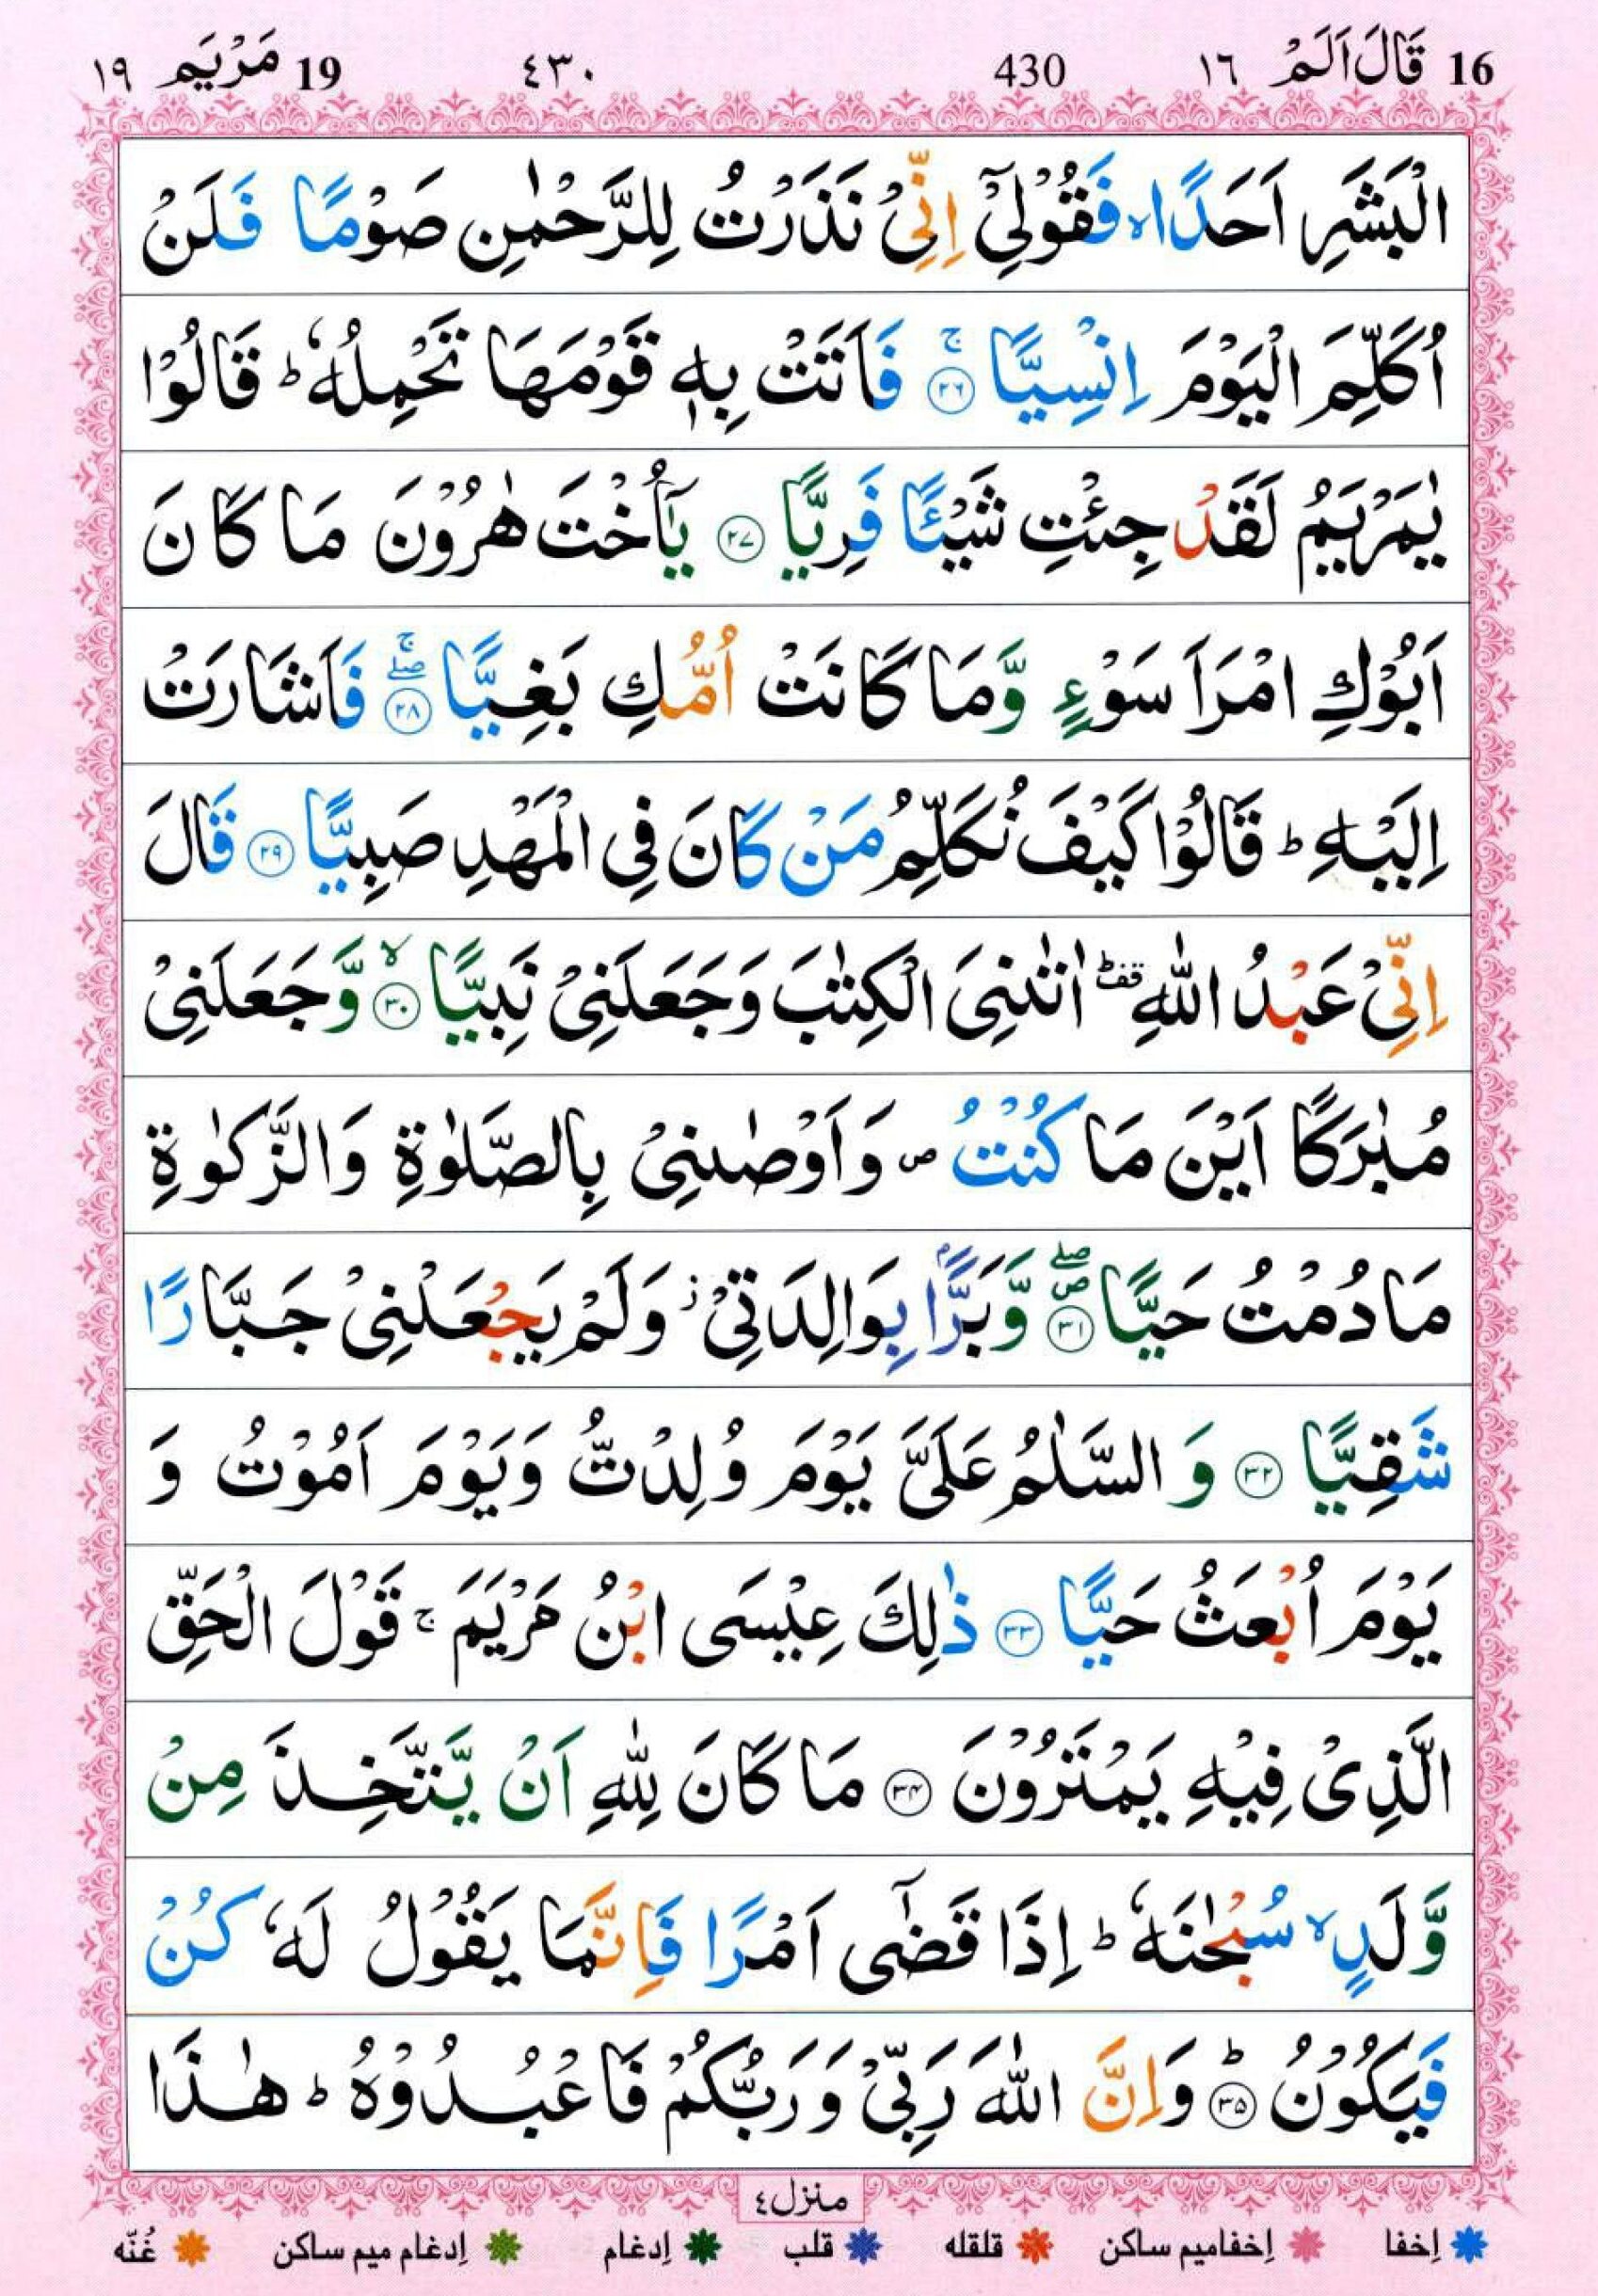 16 قَالَ اَلَمْ ١٦ 430 ٤٣٠ 19 مَرْيَم ١٩
الْبَشَرِ اَحَدًا ۙ فَقُوْلِىْٓ اِنِّىْ نَذَرْتُ لِلرَّحْمٰنِ صَوْمًا فَلَنْ
اُكَلِّمَ الْيَوْمَ اِنْسِيًّا ۚ ۲۶ فَاَتَتْ بِهٖ قَوْمَهَا تَحْمِلُهٗ ؕ قَالُوْا
يٰمَرْيَمُ لَقَدْ جِئْتِ شَيْئًا فَرِيًّا ۲۷ يٰۤاُخْتَ هٰرُوْنَ مَا كَانَ
اَبُوْكِ امْرَاَ سَوْءٍ وَّمَا كَانَتْ اُمُّكِ بَغِيًّا ۖۚ ۲۸ فَاَشَارَتْ
اِلَيْهِ ؕ قَالُوْا كَيْفَ نُكَلِّمُ مَنْ كَانَ فِى الْمَهْدِ صَبِيًّا ۲۹ قَالَ
اِنِّىْ عَبْدُ اللّٰهِ ؕقف اٰتٰىنِىَ الْكِتٰبَ وَجَعَلَنِىْ نَبِيًّا ۙ ۳۰ وَّجَعَلَنِىْ
مُبٰرَكًا اَيْنَ مَا كُنْتُ ص وَاَوْصٰىنِىْ بِالصَّلٰوةِ وَالزَّكٰوةِ
مَا دُمْتُ حَيًّا ۖص ۳۱ وَّبَرًّۢا بِوَالِدَتِىْ ز وَلَمْ يَجْعَلْنِىْ جَبَّارًا
شَقِيًّا ۳۲ وَالسَّلٰمُ عَلَىَّ يَوْمَ وُلِدْتُّ وَيَوْمَ اَمُوْتُ وَ
يَوْمَ اُبْعَثُ حَيًّا ۳۳ ذٰلِكَ عِيْسَى ابْنُ مَرْيَمَ ۚ قَوْلَ الْحَقِّ
الَّذِىْ فِيْهِ يَمْتَرُوْنَ ۳۴ مَا كَانَ لِلّٰهِ اَنْ يَّتَّخِذَ مِنْ
وَّلَدٍ ۙ سُبْحٰنَهٗ ؕ اِذَا قَضٰٓى اَمْرًا فَاِنَّمَا يَقُوْلُ لَهٗ كُنْ
فَيَكُوْنُ ؕ ۳۵ وَاِنَّ اللّٰهَ رَبِّىْ وَرَبُّكُمْ فَاعْبُدُوْهُ ؕ هٰذَا
منزل ٤
إخفا إخفاميم ساكن قلقله قلب إدغام إدغام ميم ساكن غُنّه